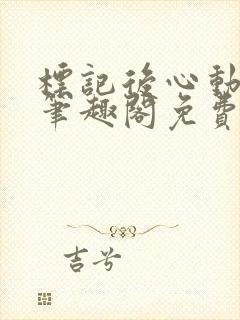 標記後心動
筆趣閣免費
吉兮